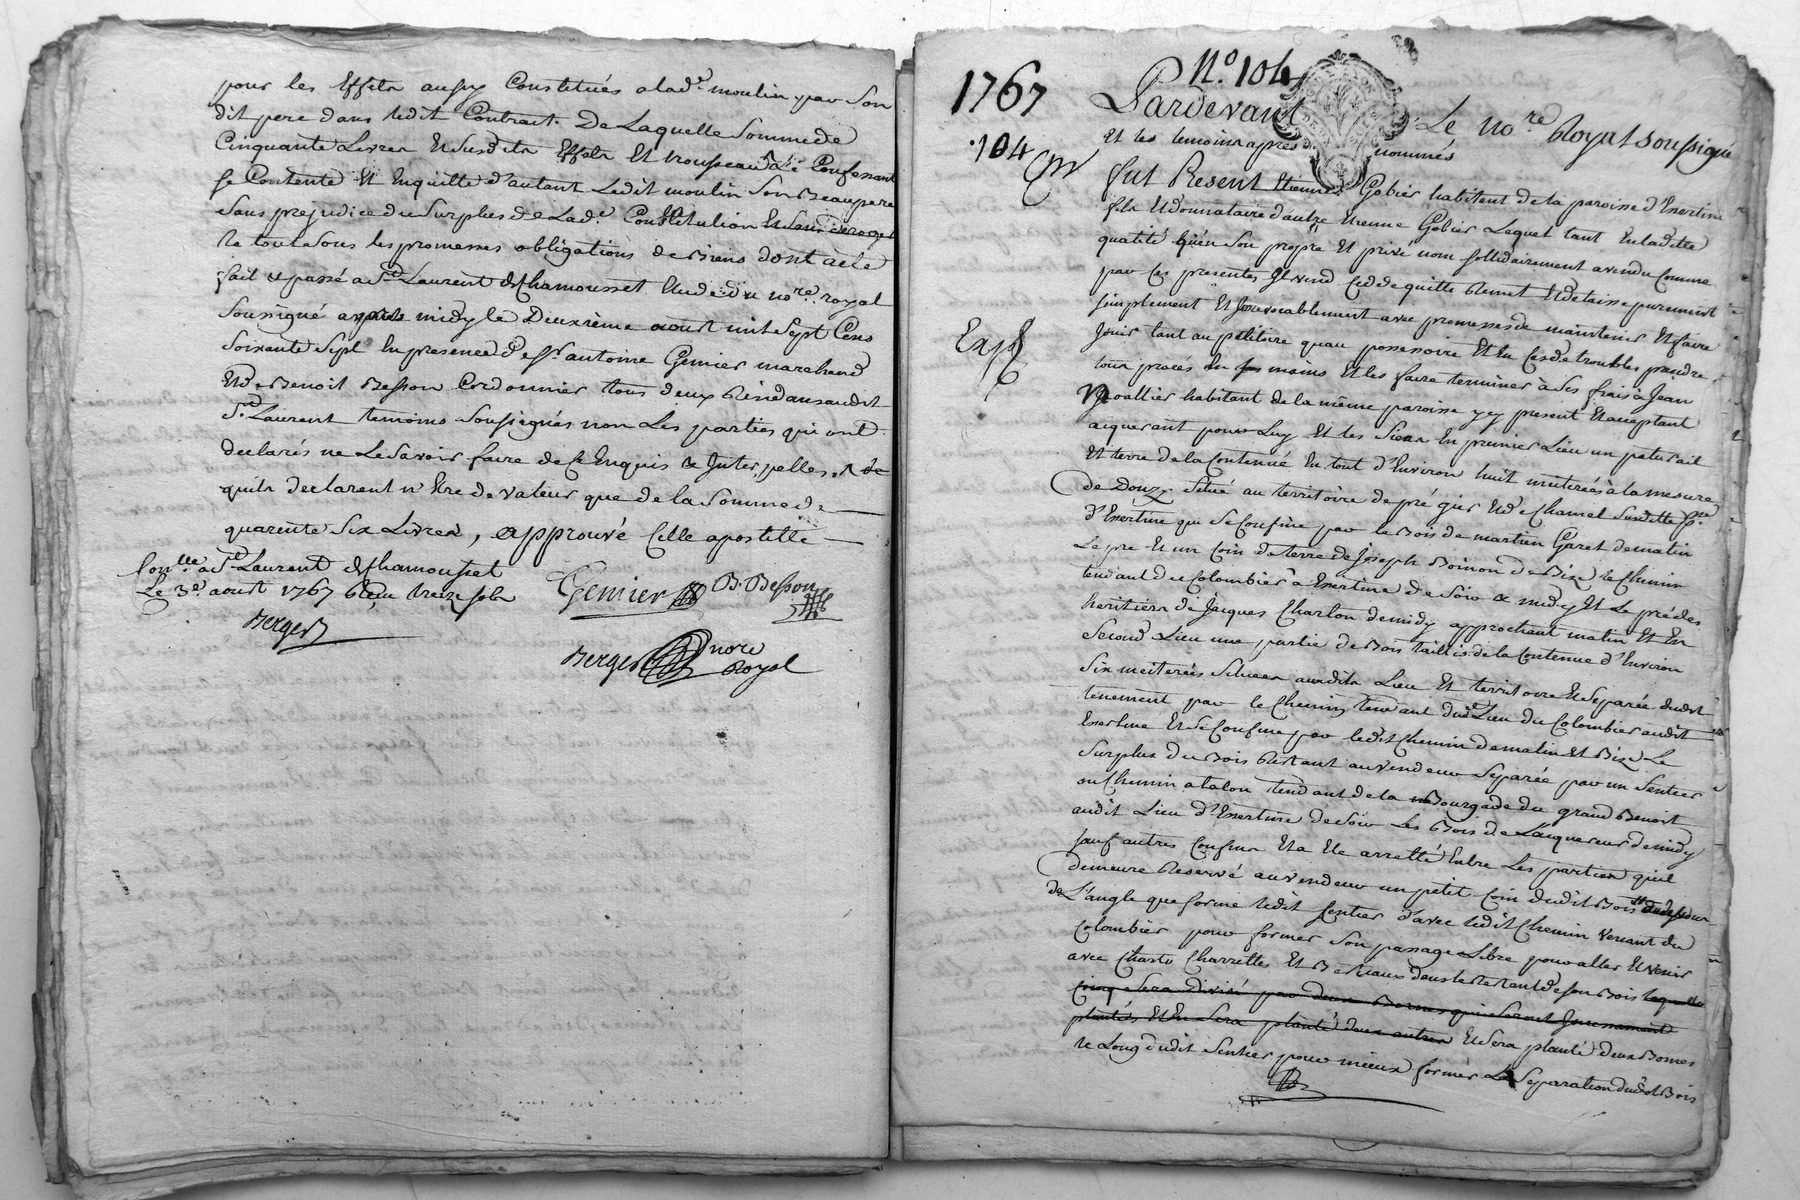 pour les Effets aussy Constitués a lad.e moulin par Son
dit pere dans ledit Contract. De Laquelle Somme de
Cinquante Livres Et Susdits Effets Et trousseau Confessant
Se Contente Et Enquitte d'autant Ledit moulin Son Beaupere
Sans prejudice du Surplus de Lad.e Constitution Et Sans deroger
le tout Sous les promesses obligations de Biens dont acte
fait et passé a St. Laurent de Chamousset Etude du no.re royal
Soussigné après midy le Deuxième aoust mil Sept Cens
Soixante Sept En presence de Sr. antoine Gemier marchand
Et de Benoit Besson Cordonnier tous deux Résidans audit
St. Laurent temoins Soussignés non Les parties qui ont
declarés ne Le Savoir faire de Ce Enquis & Interpellés,
quils declarent n'Etre de valeur que de la Somme de
quarente Six Livres, approuvé Celle apostille
Con.lle a St. Laurent de Chamousset
Le 3.e aoust 1767 Reçu treize sols
Berger
Gemier
B. Besson
Berger nore
Royal
N.o 104
1767
Pardevant Le no.re Royal soussigné
104
Et les temoins après nommés
fut Present Etienne Gobier habitant de la paroisse d'Essertine
fils Et donnataire d'autre Etienne Gobier Lequel tant En ladite
qualité qu'en Son propre Et privé nom sollidairement a vendu Comme
par Ces presentes Il vend Cedde quitte Remet Et delaisse purement
simplement Et Irrevocablement avec promesses de maintenir Et faire
Exp
Jouir tant au pétitoire quau possessoire Et En Cas de troubles prendre
tous procès En mains Et les faire terminer à Ses frais à Jean
habitant de la même paroisse y cy present Et acceptant
aiquerant pour Luy Et les Siens En premier Lieu un paturail
Et terre de la Contenue En tout d'Environ huit meiterées à la mesure
de Donzy Situé au territoire de pré gier Et de Chamel Susditte p.sse
d'Essertine qui Se Confine par le Bois de martin Garet de matin
Le pre Et un Coin de terre de Joseph Boinon de Bize le Chemin
tendant du Colombier à Essertine de Soir & midy Et Le pré des
heritiers de Jacques Charlon de midy approchant matin Et En
Second Lieu une partie de Bois taillis de la Contenue d'Environ
Six meiterées Situées audits Lieu Et territoire Et Separée dudit
tenement par le Chemin tendant dud. Lieu du Colombier audit
Essertine Et Se Confine par ledit Chemin de matin Et Bize Le
Surplus du Bois Restant au vendeur Separée par un Sentier
ou Chemin a talon tendant de la Bourgade du grand Benoit
audit Lieu d'Essertine de Soir Les Bois de Lacquereur de midy
sauf autres Confins Et a Ete arretté Entre Les parties quil
demeure Reservé au vendeur un petit Coin dudit Bois
de L'angle que forme ledit Sentier d'avec ledit Chemin venant du
Colombier pour former Son passage Libre pour aller Et venir
avec Chars Charrettes Et Bestiaux dans le Restant de son Bois
Et Sera planté deux Bornes
le Long dudit Sentier pour mieux former La Separation dudit Bois